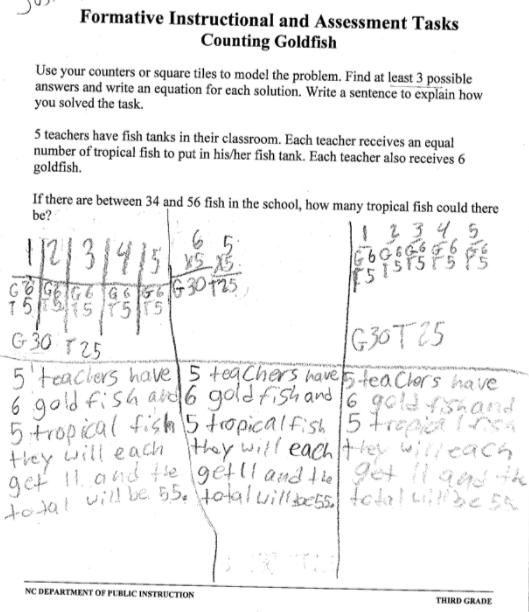 Formative Instructional and Assessment Tasks
Counting Goldfish
Use your counters or square tiles to model the problem. Find at least 3 possible
answers and write an equation for each solution. Write a sentence to explain how
you solved the task.
5 teachers have fish tanks in their classroom. Each teacher receives an equal
number of tropical fish to put in his/her fish tank. Each teacher also receives 6
goldfish.
If there are between 34 and 56 fish in the school, how many tropical fish could there
be?
1 2 3 4 5
G6 G6 G6 G6 G6
T5 T5 T5 T5 T5
G30 T25
6 5
x5 x5
G30 T25
1 2 3 4 5
G6 G6 G6 G6 G6
T5 T5 T5 T5 T5
G30 T25
5 teachers have
6 gold fish and
5 tropical fish
they will each
get 11 and the
total will be 55.
5 teachers have
6 gold fish and
5 tropical fish
they will each
get 11 and the
total will be 55.
5 teachers have
6 gold fish and
5 tropical
they will each
get 11 and the
total will be 55
NC DEPARTMENT OF PUBLIC INSTRUCTION
THIRD GRADE